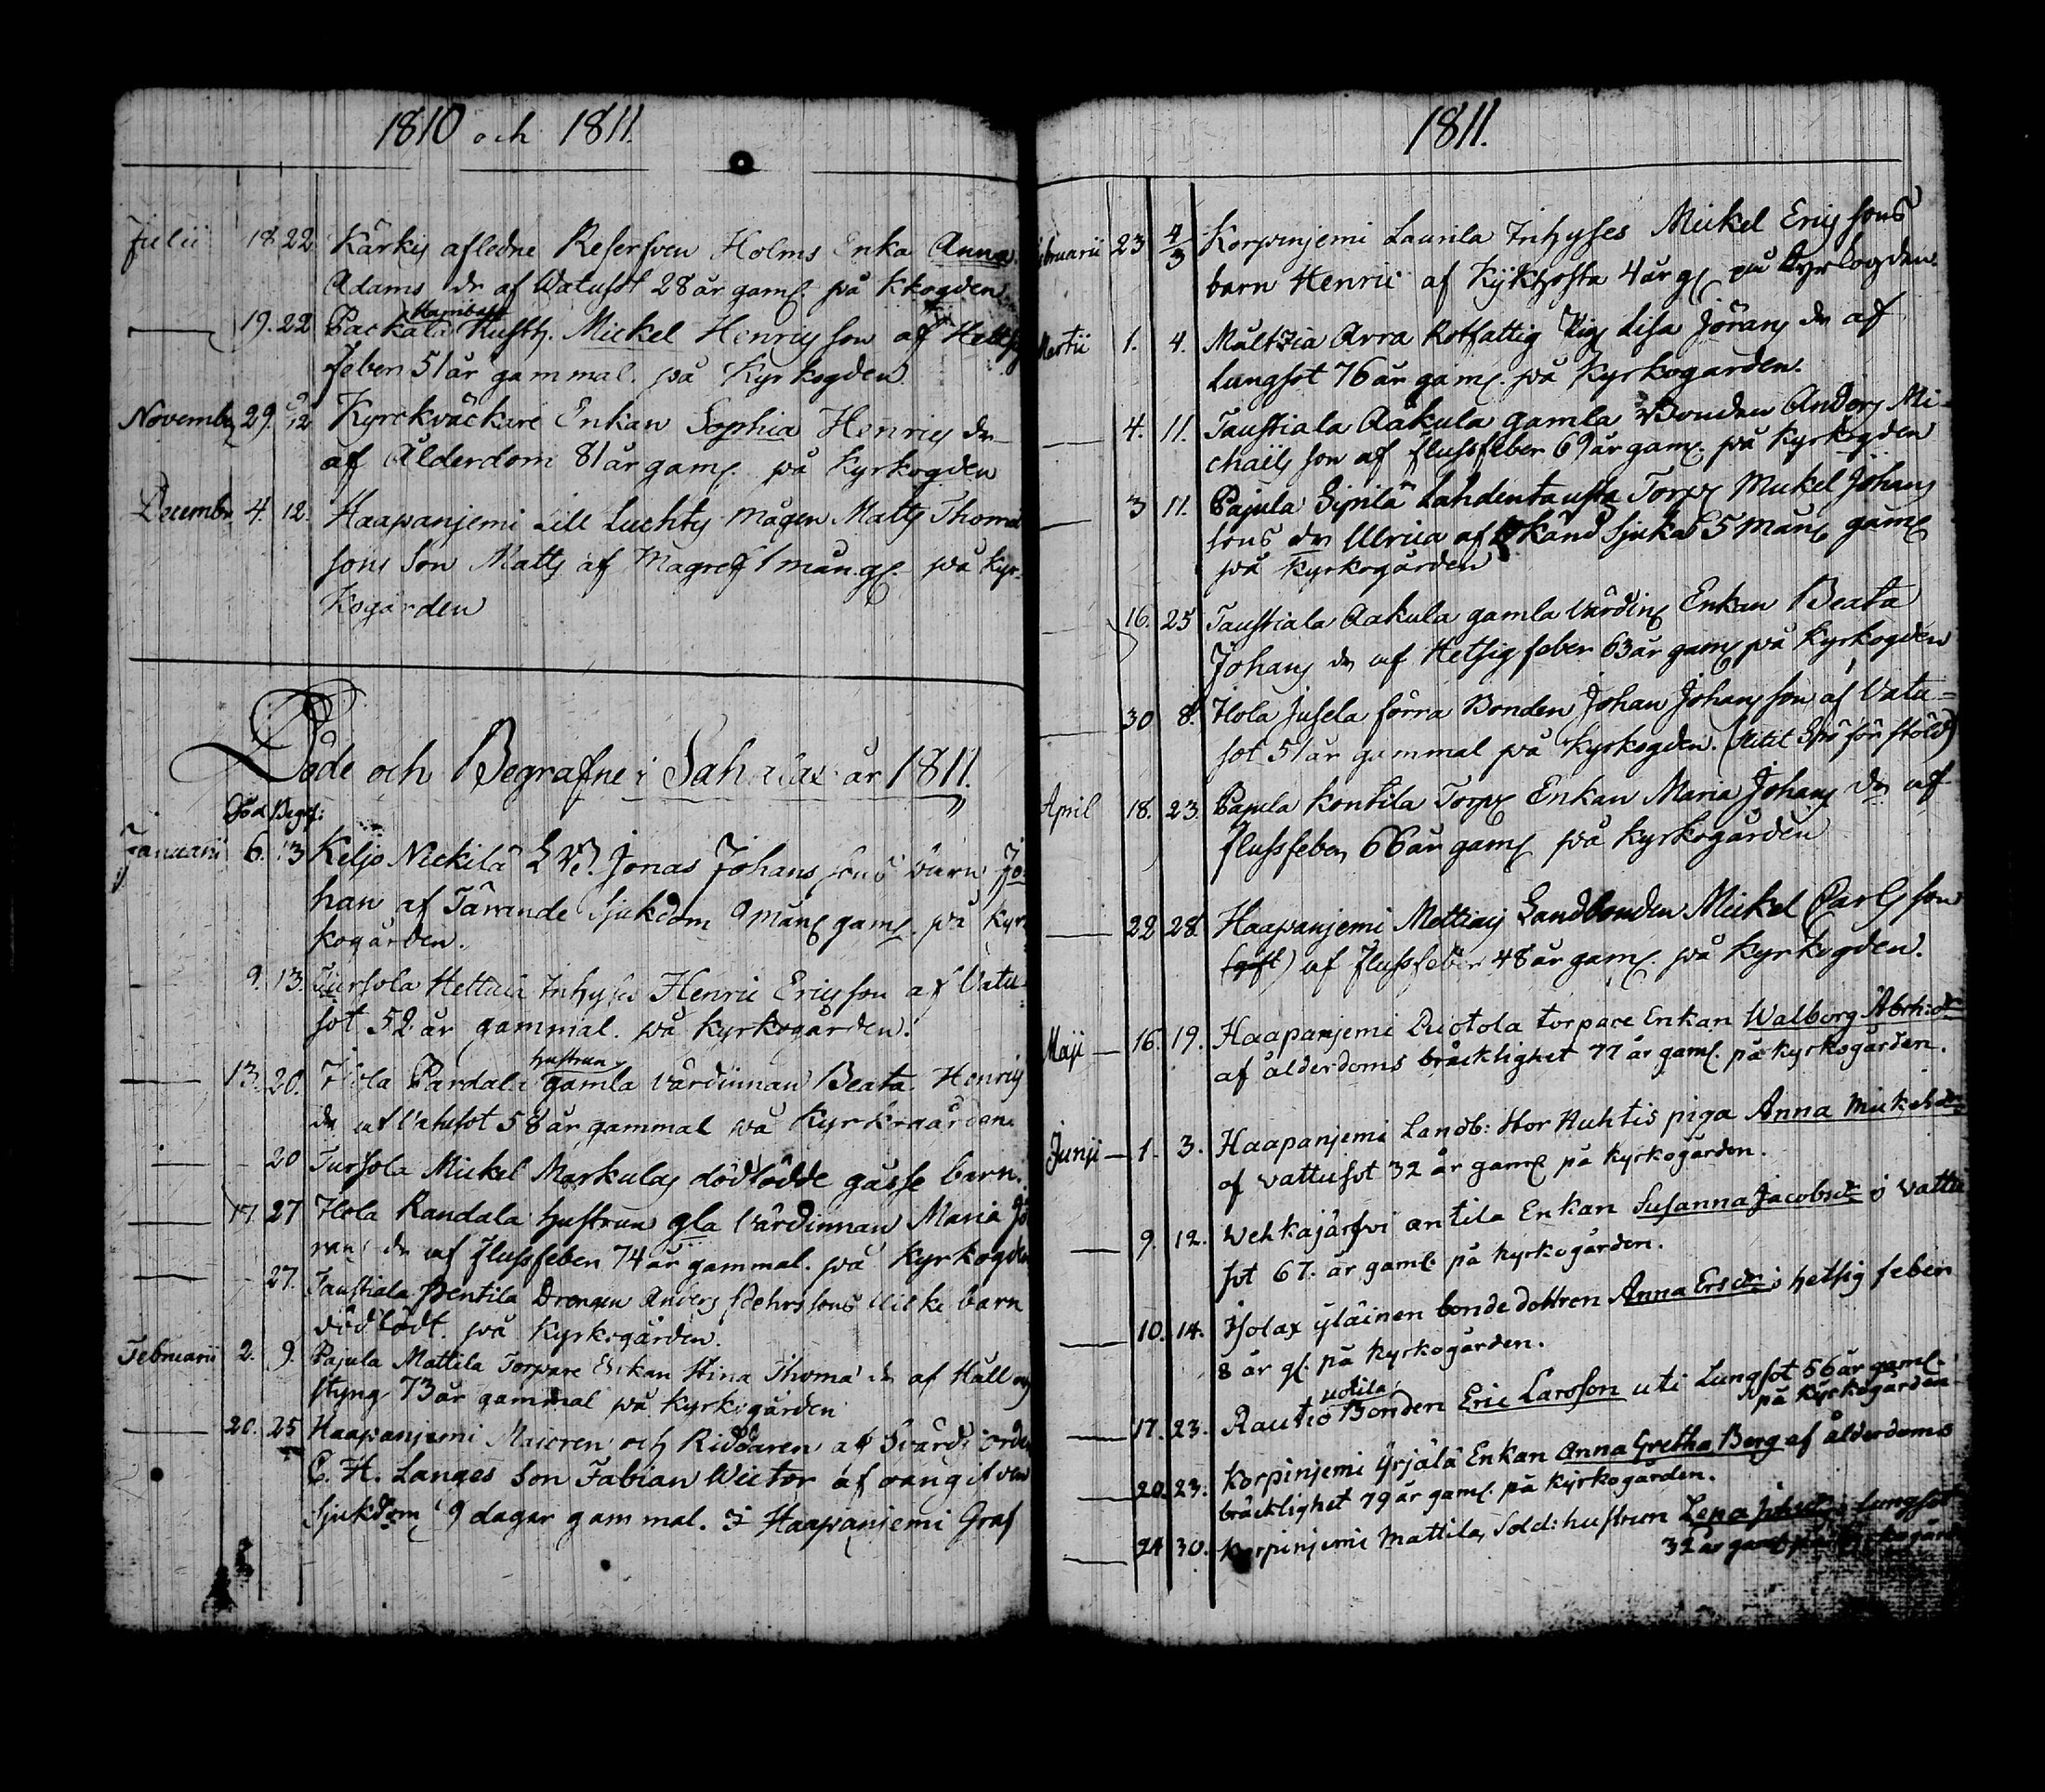 1810 och 1811.
Julii 18 22 Kärkis afledne Reserfven Holms Enka Anna
Adams dr af Watusot 28 år gaml. på Kkogden
19. 22 Packala Rusth. Mickel Henrics son af Hetsig
feber 51 år gammal. på Kyrkogden
Novembr 29. 12 Kyrckväckare Enkan Sophia Henrics dr
af Ålderdom 81 år gaml. på Kyrkogden
Decembr 4. 12. Haapanjemi Lill Luchtis Mågen Matts Thomæ
sons Son Matts af Magref 1 mån. gl. på Kyr-
kogården
Döde och Begrafne i Sahalax år 1811.
Död Begr:
Januarii 6. 13 Keljo Nickilä Jonas Johans sons barn Jo-
han af Tärande Sjukdom 9 mån gaml. på Kyr-
kogården.
9. 13. Tursola Hettula Inhyses Henric Ericsson af Vatu-
sot 52 år gammal. på Kyrkogården.
hustrun
13. 20. Ihola Pardala gamla Värdinnan Beata Henrics
dr af Vatusot 58 år gammal på Kyrkogården
20 Tursola Mickel Markulas dödfödde gåsse barn.
17. 27 Ihola Randala hustrun gla Värdinnan Maria Jö-
rans dr af Flussfeber 74 år gammal. på Kyrkogden
27. Taustiala Pentila Drengen Anders Pehrssons Flicke barn
dödfödt. på Kyrkogården.
Februarii 2. 9. Pajula Mattila Torpare Enkan Stina Thomæ dr af Håll och
styng 73 år gammal på Kyrkogården
20. 25 Haapanjemi Majoren och Riddaren af Svärds orden
C. H. Langes Son Fabian Wictor af oangifven
Sjukdom 9 dagar gammal. I Haapanjemi Graf
1811.
Februarii 23 4/3 Korpinjemi Laurila Inhyses Mickel Erics sons
barn Henric af Kykhosta 4 år gl på Kyrkogden.
Martii 1. 4. Multzia Arra Rotfattig Pig Lisa Jörans dr af
Lungsot 76 år gaml. på Kyrkogården.
4. 11. Taustiala Aakula gamla Bonden Anders Mi-
chaels son af flussfeber 69 år gaml. på Kyrkogden
3 11. Pajula Sipilä Lahdentausta Torp Mickel Johans
sons dr Ulrica af okänd Sjukd 5 mån gaml
på Kyrkogården
16. 25 Taustiala Aakula gamla Värdin Enkan Beata
Johans dr af Hetsig feber 63 år gaml på Kyrkogden
30 8. Ihola Jusela förra Bonden Johan Johansson af Vatu-
sot 51 år gammal på Kyrkogden. (slitit Spö för stöld)
April 18. 23. Pajula Kontila Torp Enkan Maria Johans dr af
flussfeber 66 år gaml på Kyrkogården
22 28. Haapanjemi Mattiais Landbonden Mickel Carlsson
(gift) af flussfeber 48 år gaml. på Kyrkogden.
Maji 16. 19. Haapanjemi Ruotola torpare Enkan Walborg Abrh:dr
af ålderdoms bräcklighet 77 år gaml. på kyrkogården.
Junii 1. 3. Haapanjemi Landb: Stor Huhtis piga Anna Mickelsdr
af vattusot 32 år gaml på kyrkogården.
9. 12. Wehkajärfvi antila Enkan Susanna Jacobsdr i vattu
sot 67. år gaml. på kyrkogården.
10. 14. Isolax yläinen bonde dottren Anna Ersdr i hetsig feber
8 år gl. på kyrkogården.
uotila
17. 23. Rautio Bonden Eric Larsson uti Lungsot 56 år gaml.
på kyrkogården
20. 23. Korpinjemi Yrjälä Enkan Anna Gretha Berg af ålderdoms
bräcklighet 79 år gaml. på kyrkogården.
24 30. Korpinjemi Mattila, Sold: hustrun Lena i lungsot
32 år gaml på kyrkogård